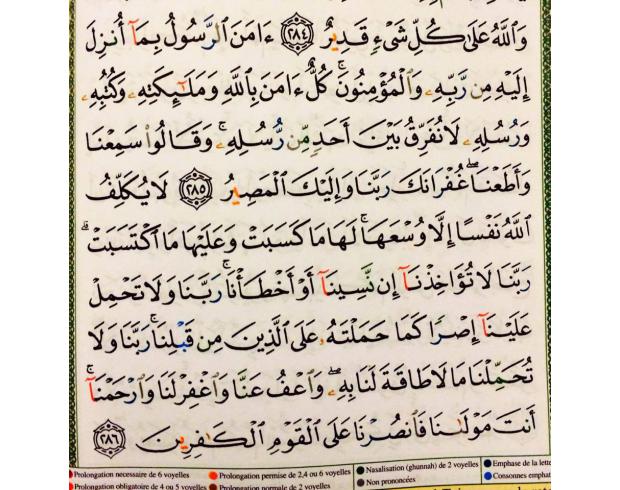 وَٱللَّهُ عَلَىٰ كُلِّ شَىْءٍ قَدِيرٌ ٢٨٤ ءَامَنَ ٱلرَّسُولُ بِمَآ أُنزِلَ
إِلَيْهِ مِن رَّبِّهِۦ وَٱلْمُؤْمِنُونَ ۚ كُلٌّ ءَامَنَ بِٱللَّهِ وَمَلَـٰٓئِكَتِهِۦ وَكُتُبِهِۦ
وَرُسُلِهِۦ لَا نُفَرِّقُ بَيْنَ أَحَدٍ مِّن رُّسُلِهِۦ ۚ وَقَالُوا۟ سَمِعْنَا
وَأَطَعْنَا ۖ غُفْرَانَكَ رَبَّنَا وَإِلَيْكَ ٱلْمَصِيرُ ٢٨٥ لَا يُكَلِّفُ
ٱللَّهُ نَفْسًا إِلَّا وُسْعَهَا ۚ لَهَا مَا كَسَبَتْ وَعَلَيْهَا مَا ٱكْتَسَبَتْ ۗ
رَبَّنَا لَا تُؤَاخِذْنَآ إِن نَّسِينَآ أَوْ أَخْطَأْنَا ۚ رَبَّنَا وَلَا تَحْمِلْ
عَلَيْنَآ إِصْرًا كَمَا حَمَلْتَهُۥ عَلَى ٱلَّذِينَ مِن قَبْلِنَا ۚ رَبَّنَا وَلَا
تُحَمِّلْنَا مَا لَا طَاقَةَ لَنَا بِهِۦ ۖ وَٱعْفُ عَنَّا وَٱغْفِرْ لَنَا وَٱرْحَمْنَآ ۚ
أَنتَ مَوْلَىٰنَا فَٱنصُرْنَا عَلَى ٱلْقَوْمِ ٱلْكَـٰفِرِينَ ٢٨٦
Prolongation necessaire de 6 voyelles Prolongation permise de 2,4 ou 6 voyelles Nasalisation (ghunnah) de 2 voyelles Emphase de la lettre
Prolongation obligatoire de 4 ou 5 voyelles Prolongation normale de 2 voyelles Non prononcées Consonnes